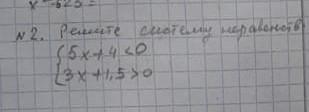 x - 625 =
№2. Решите систему неравенств
{5x+4<0
{3x+1,5>0